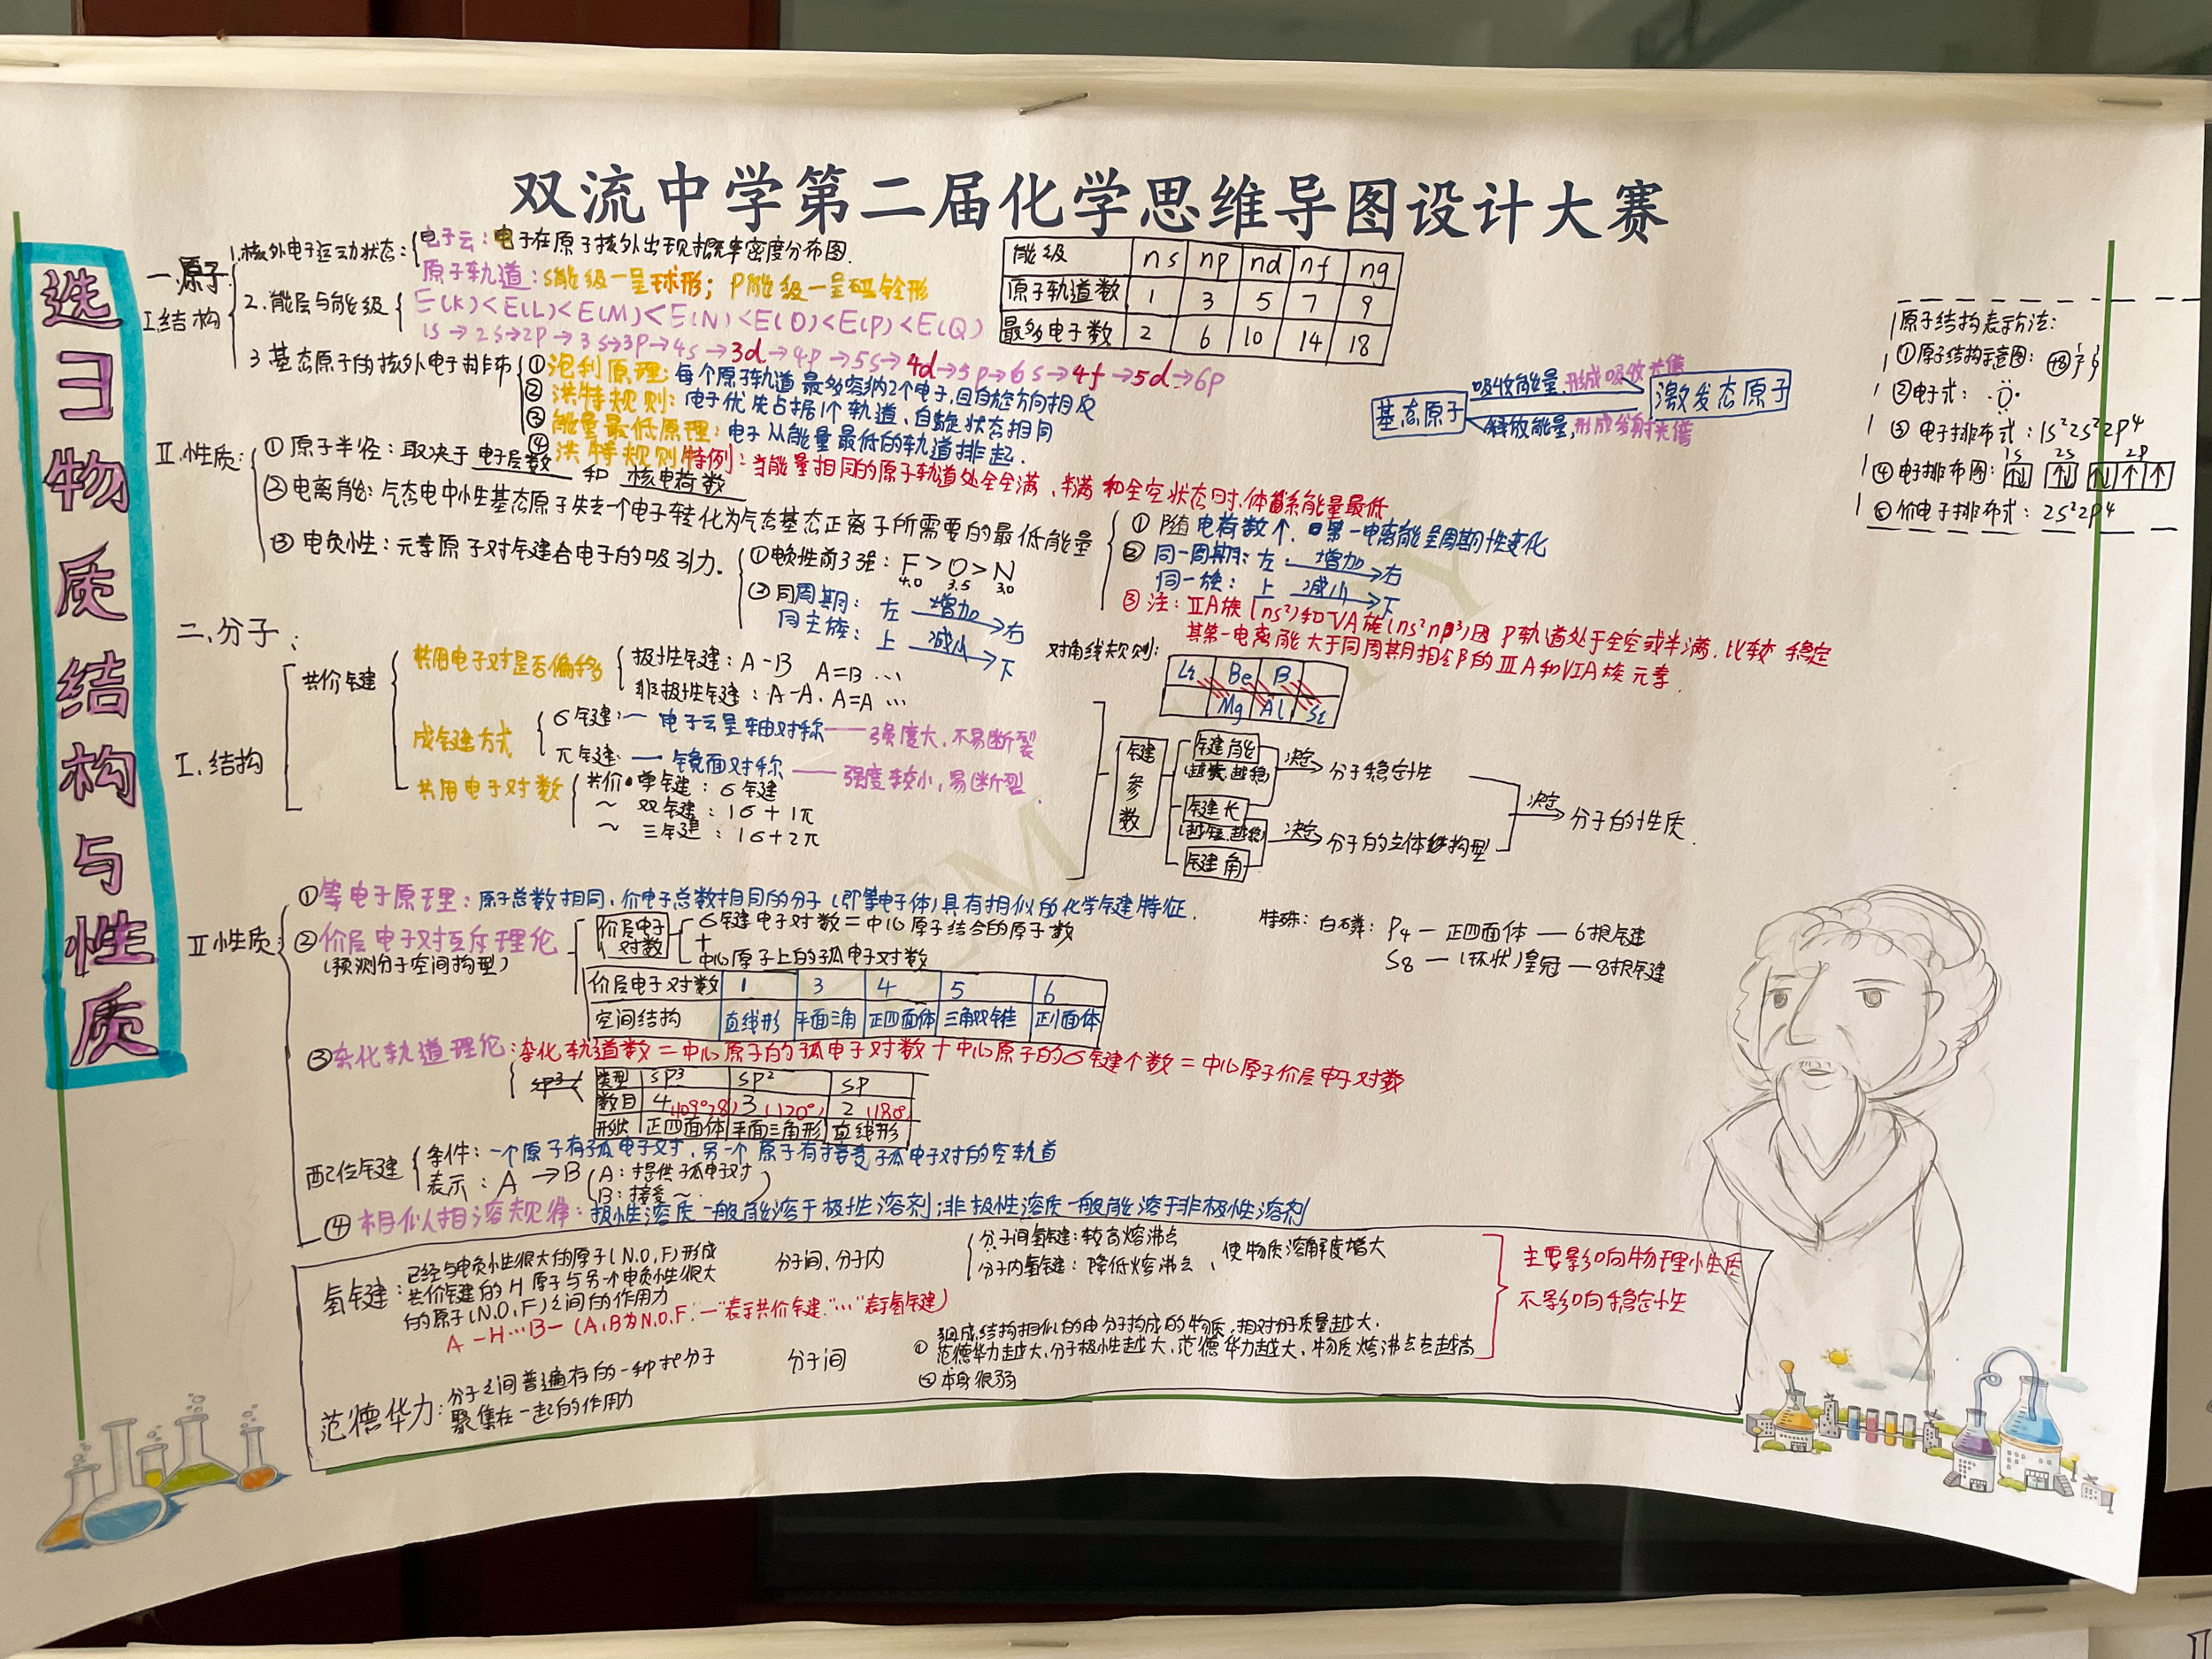 双流中学第二届化学思维导图设计大赛
选3物质结构与性质
一.原子
I.结构
1.核外电子运动状态:
电子云:电子在原子核外出现概率密度分布图.
原子轨道:s能级一呈球形;P能级一呈哑铃形
2.能层与能级
E(K)<E(L)<E(M)<E(N)<E(O)<E(P)<E(Q)
1s→2s→2p→3s→3p→4s→3d→4p→5s→4d→5p→6s→4f→5d→6p
能级 ns np nd nf ng
原子轨道数 1 3 5 7 9
最多电子数 2 6 10 14 18
3 基态原子的核外电子排布
①泡利原理:每个原子轨道最多容纳2个电子,且自旋方向相反
②洪特规则:电子优先占据1个轨道、自旋状态相同
③能量最低原理:电子从能量最低的轨道排起.
④洪特规则特例:当能量相同的原子轨道处全满、半满和全空状态时.体系能量最低
基态原子
吸收能量,形成吸收光谱
释放能量,形成发射光谱
激发态原子
原子结构表示方法:
①原子结构示意图:
②电子式:
③电子排布式:1s²2s²2p⁴
1s 2s 2p
④电子排布图:
⑤价电子排布式:2s²2p⁴
Ⅱ.性质:
①原子半径:取决于电子层数和核电荷数
②电离能:气态电中性基态原子失去一个电子转化为气态基态正离子所需要的最低能量
①随电荷数个.第一电离能呈周期性变化
②同一周期:左 增加 右
同一族:上 减小 下
③注:ⅡA族(ns²)和VA族(ns²np³)因P轨道处于全空或半满.比较稳定
其第一电离能大于同周期相邻的ⅢA和VIA族元素.
③电负性:元素原子对键合电子的吸引力.
①电负性前3强:F>O>N
4.0 3.5 3.0
②同周期:左 增加 右
同主族:上 减小 下
对角线规则:
Li Be B
Mg Al Si
二.分子:
I.结构
共价键
共用电子对是否偏移
极性键:A-B A=B …
非极性键:A-A.A=A …
成键方式
σ键:一电子云呈轴对称——强度大,不易断裂
π键:—镜面对称——强度较小,易断裂.
共用电子对数
共价单键:σ键
~ 双键:1σ+1π
~ 三键:1σ+2π
键参数
键能
键长
(越短.越稳)
键角
决定
分子稳定性
决定
分子的立体结构型
决定
分子的性质.
Ⅱ性质:
①等电子原理:原子总数相同、价电子总数相同的分子(即等电子体)具有相似的化学键特征.
②价层电子对互斥理论
(预测分子空间构型)
价层电子对数
σ键电子对数=中心原子结合的原子数
+
中心原子上的孤电子对数
价层电子对数 1 3 4 5 6
空间结构 直线形 平面三角 正四面体 三角双锥 正八面体
特殊:白磷:P4—正四面体—6根键
S8—(环状)皇冠—8根键
③杂化轨道理论:杂化轨道数=中心原子的孤电子对数+中心原子的σ键个数=中心原子价层电子对数
sp³
类型 sp³ sp² sp
数目 4(109°28) 3(120°) 2(180°)
形状 正四面体 平面三角形 直线形
配位键
条件:一个原子有孤电子对,另一个原子有接受孤电子对的空轨道
表示:A→B(A:提供孤电子对
B:接受~.)
④相似相溶规律:极性溶质一般能溶于极性溶剂;非极性溶质一般能溶于非极性溶剂
氢键:已经与电负性很大的原子(N.O,F)形成
共价键的H原子与另个电负性很大
的原子(N.O,F)之间的作用力
A-H…B-(A,B为N.O.F."一"表示共价键."…"表示氢键)
分子间、分子内
分子间氢键:较高熔沸点
分子内氢键:降低熔沸点、使物质溶解度增大
主要影响物理性质
不影响稳定性
范德华力:分子之间普遍存的一种把分子
聚集在一起的作用力
分子间
①组成结构相似的由分子构成的物质,相对分子质量越大.
范德华力越大,分子极性越大,范德华力越大,物质熔沸点越高
②本身很弱